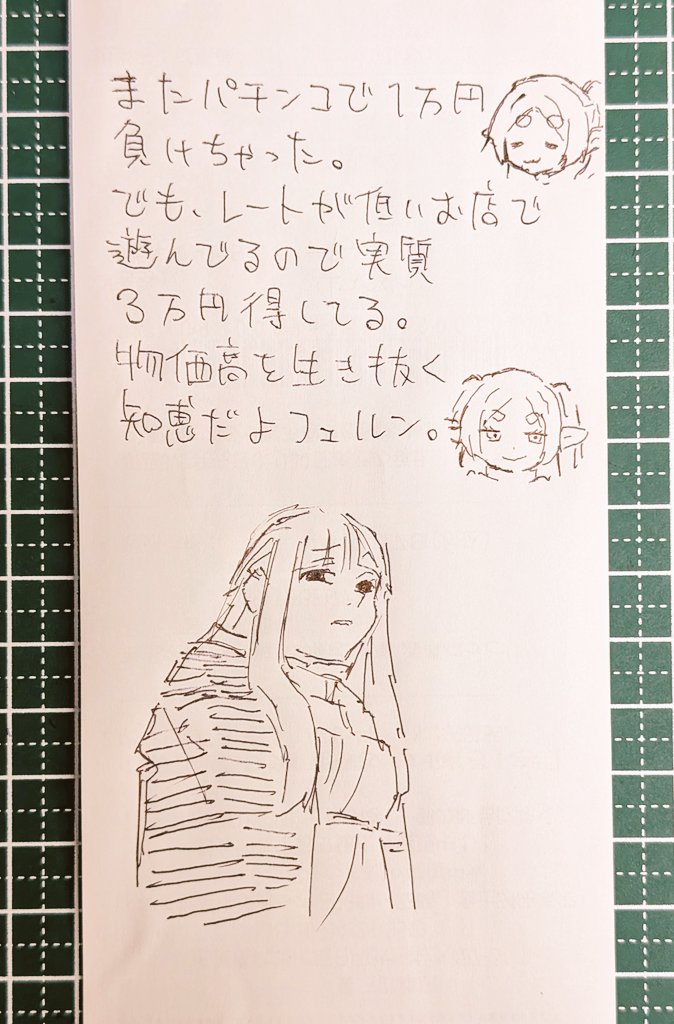 またパチンコで1万円
負けちゃった。
でも、レートが低いお店で
遊んでるので実質
3万円得してる。
物価高を生き抜く
知恵だよフェルン。